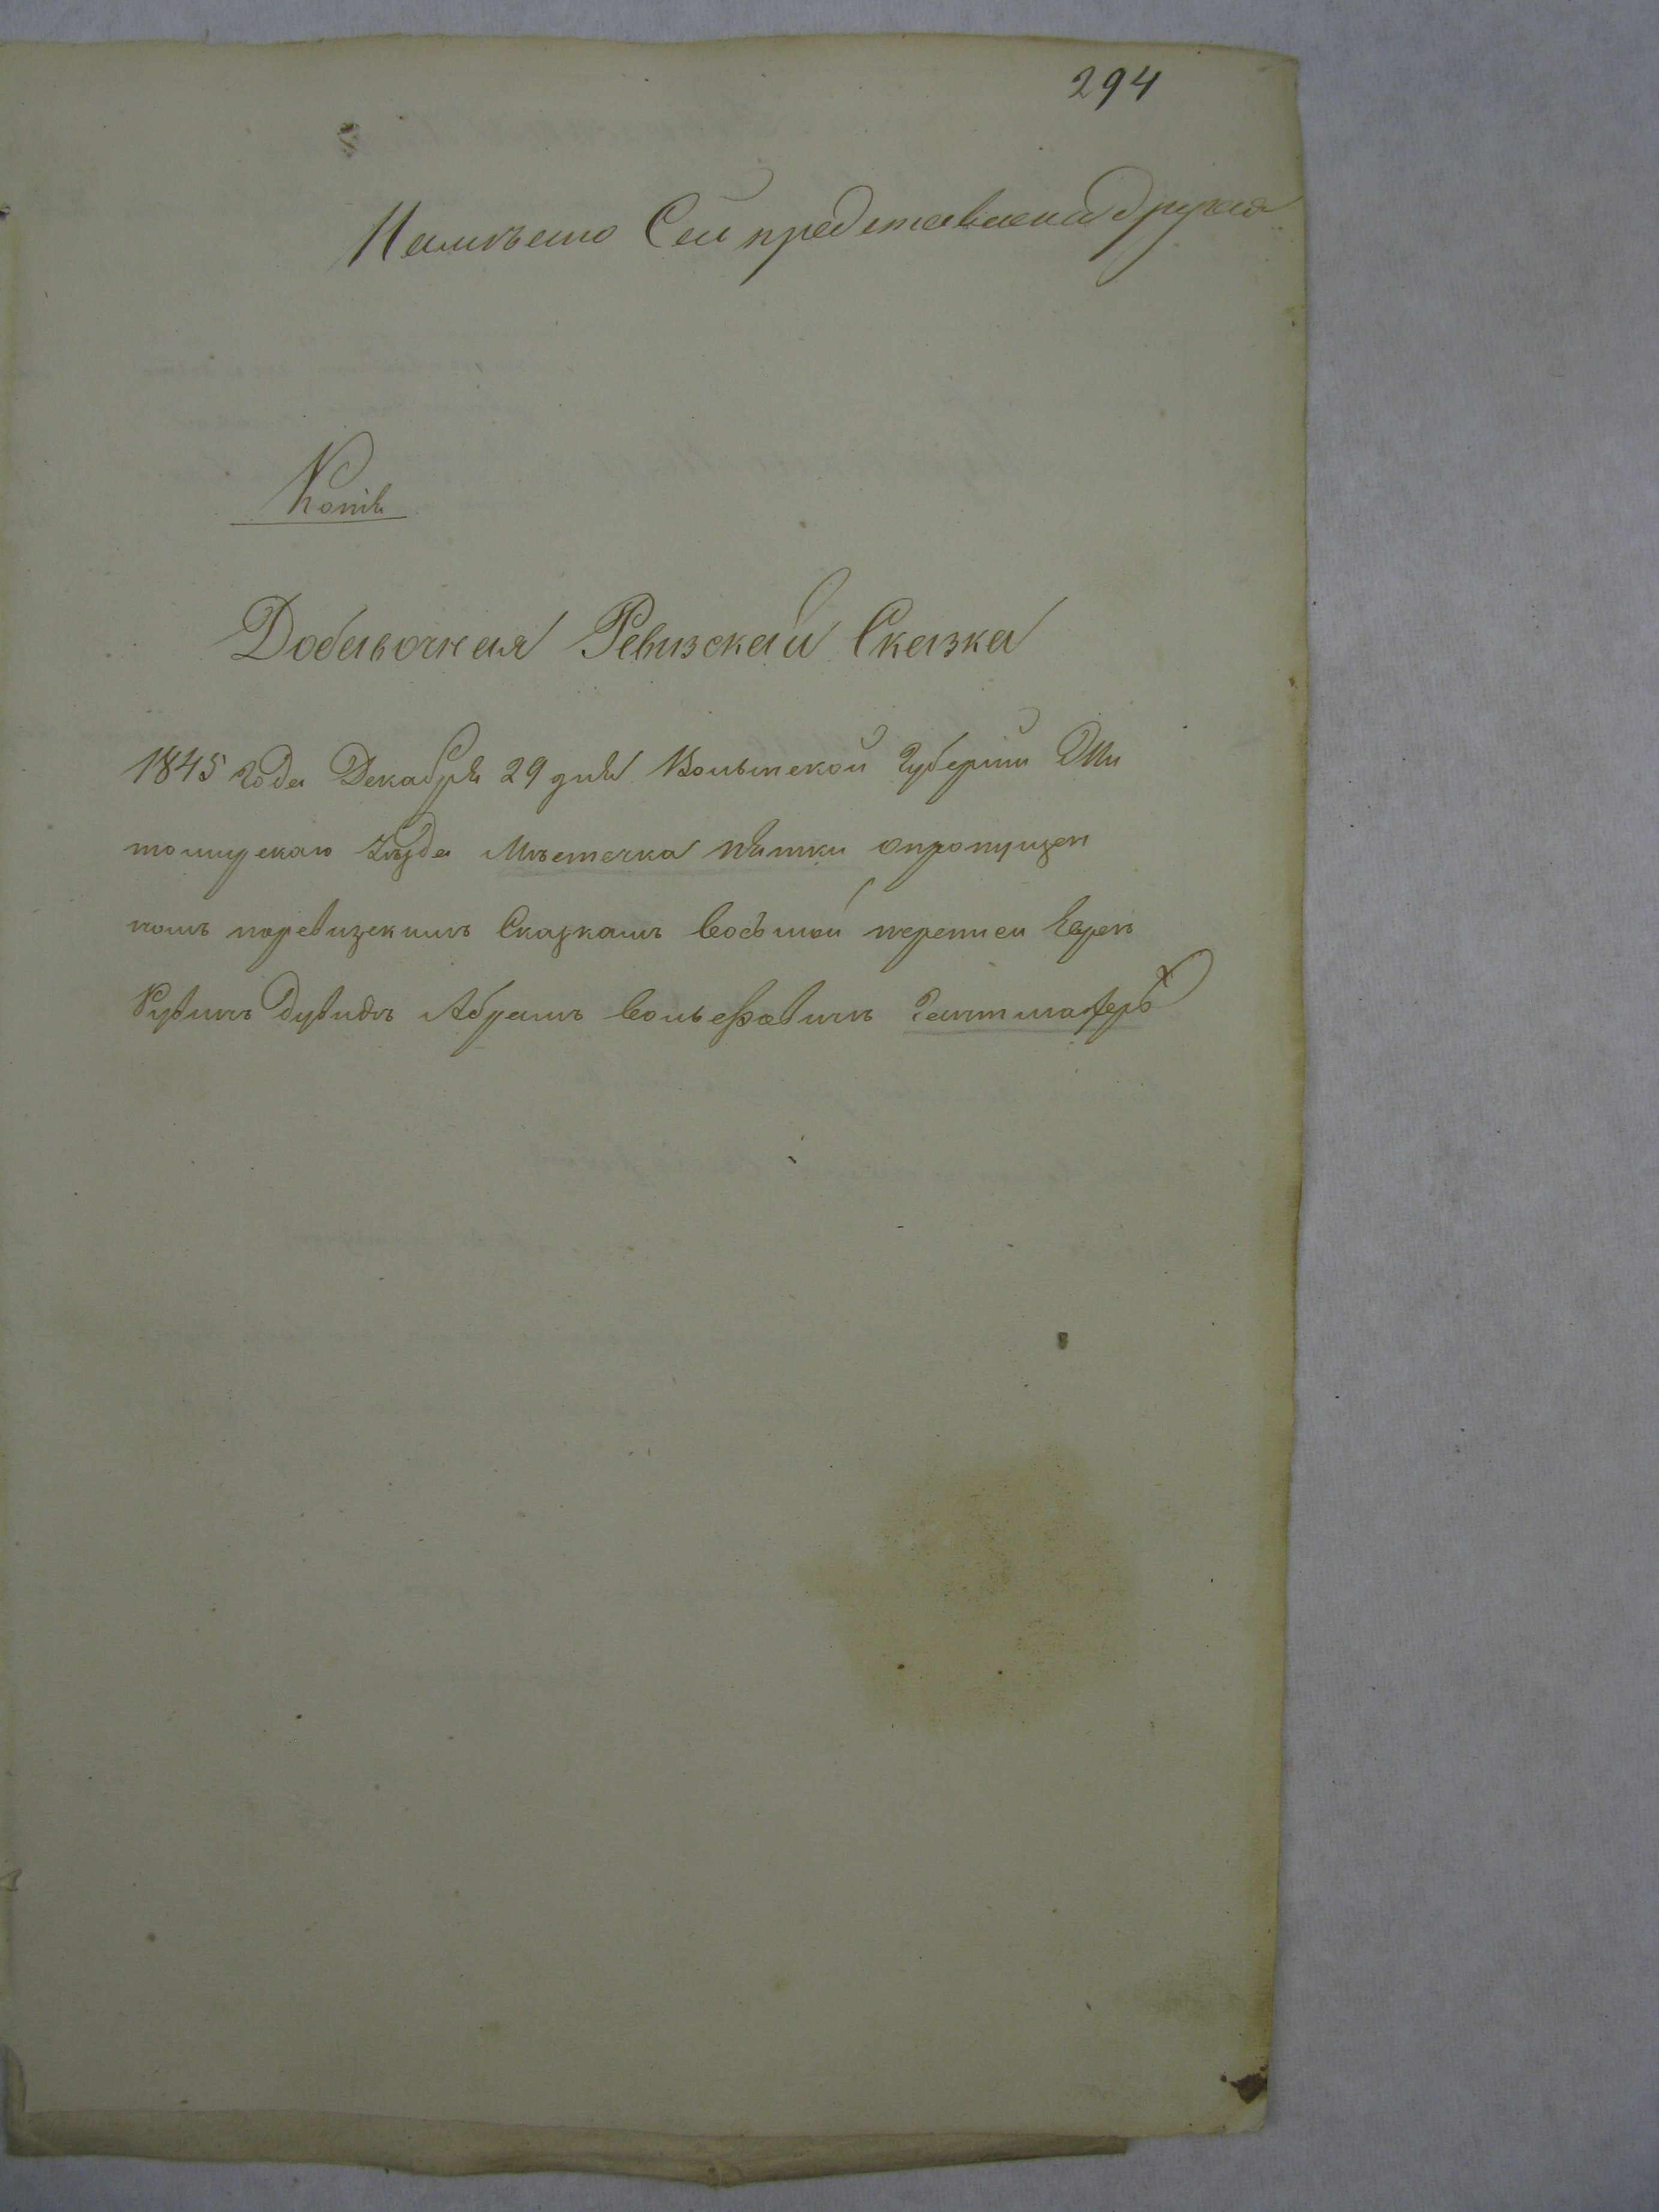 294
Намѣсто Сей представлена другая
Копія
Добавочная Ревизская Сказка
1845 года Декабря 29 дня Волынской Губерніи Жи
томирскаго Уѣзда Мѣстечка Пятки опропущен
номъ поревизскимъ Сказкамъ Восьмой переписи Евреѣ
Рувинъ Дувидъ Абрамъ Вольфовичъ Гантмахеръ